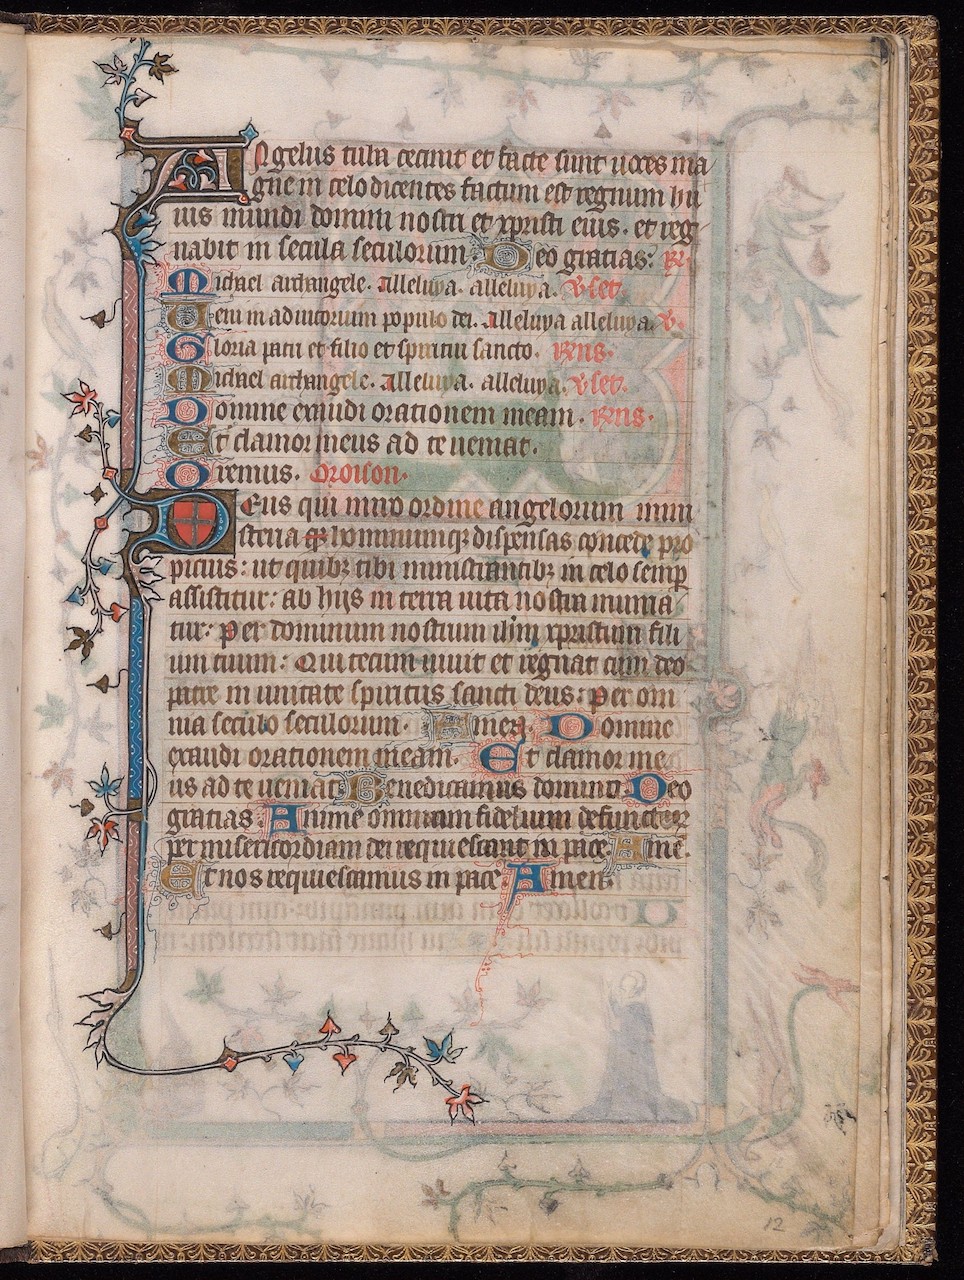 Angelus tuba cecinit et facte sunt uoces ma
gne in celo dicentes factum est regnum hu
ius mundi domini nostri et xpristi eius. et reg
nabit in secula seculorum. Deo gratias: R.
Michael archangele. Alleluya. alleluya. V set.
Veni in adiutorium populo dei. Alleluya alleluya. V.
Gloria patri et filio et spiritui sancto. Rns.
Michael archangele. Alleluya. alleluya. V set.
Domine exaudi orationem meam. Rns.
Et clamor meus ad te ueniat.
Oremus. Oroison.
Deus qui miro ordine angelorum mini
steria hominumqz dispensas concede pro
picius: ut quibz tibi ministrantibz in celo semp
assistitur: ab hijs in terra uita nostra munia
tur: Per dominum nostrum ihm xpristum fili
um tuum: Qui tecum uiuit et regnat cum deo
patre in unitate spiritus sancti deus: Per om
nia seculo seculorum. Amen. Domine
exaudi orationem meam. Et clamor me
us ad te ueniat. Benedicamus domino. Deo
gratias. Anime omnium fidelium defunctor
per misericordiam dei requiescant in pace. Ame.
Et nos requiescamus in pace Amen.
12